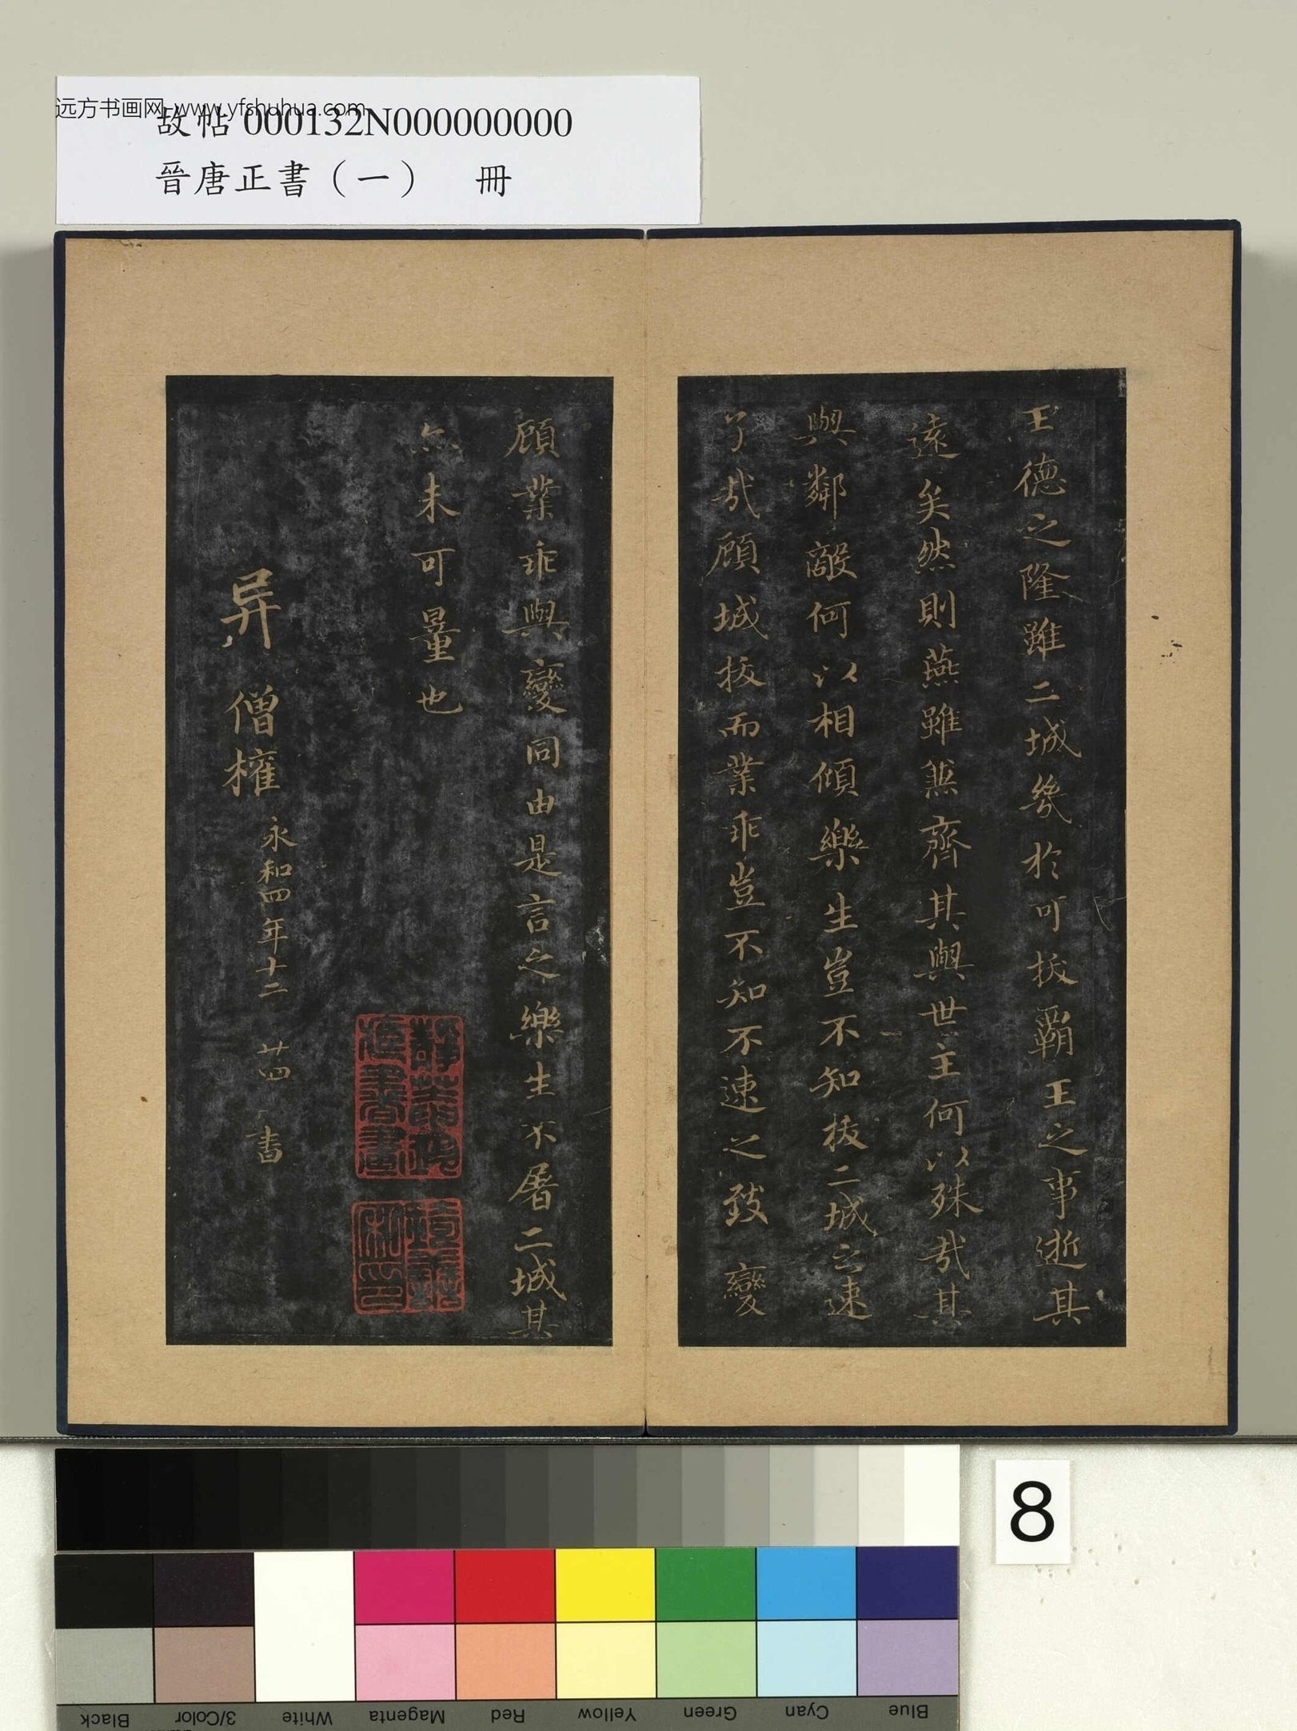 远方书画网 www.yfshuhua.com
故帖000132N000000000
晉唐正書（一） 冊
王德之隆雖二城幾於可拔霸王之事逝其
遠矣然則燕雖兼齊其與世主何以殊哉其
與鄰敵何以相傾樂生豈不知拔二城之速
了哉顧城拔而業乖豈不知不速之致變
顧業乖與變同由是言之樂生不屠二城其
亦未可量也
异 僧權
永和四年十二 廿四 書
8
Black
3/Color
White
Magenta
Red
Yellow
Green
Cyan
Blue